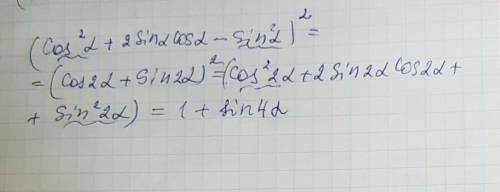 (cos²α + 2sinα cosα − sin²α)² =
= (cos2α + sin2α)² = (cos²2α + 2sin2α cos2α +
+ sin²2α) = 1 + sin4α